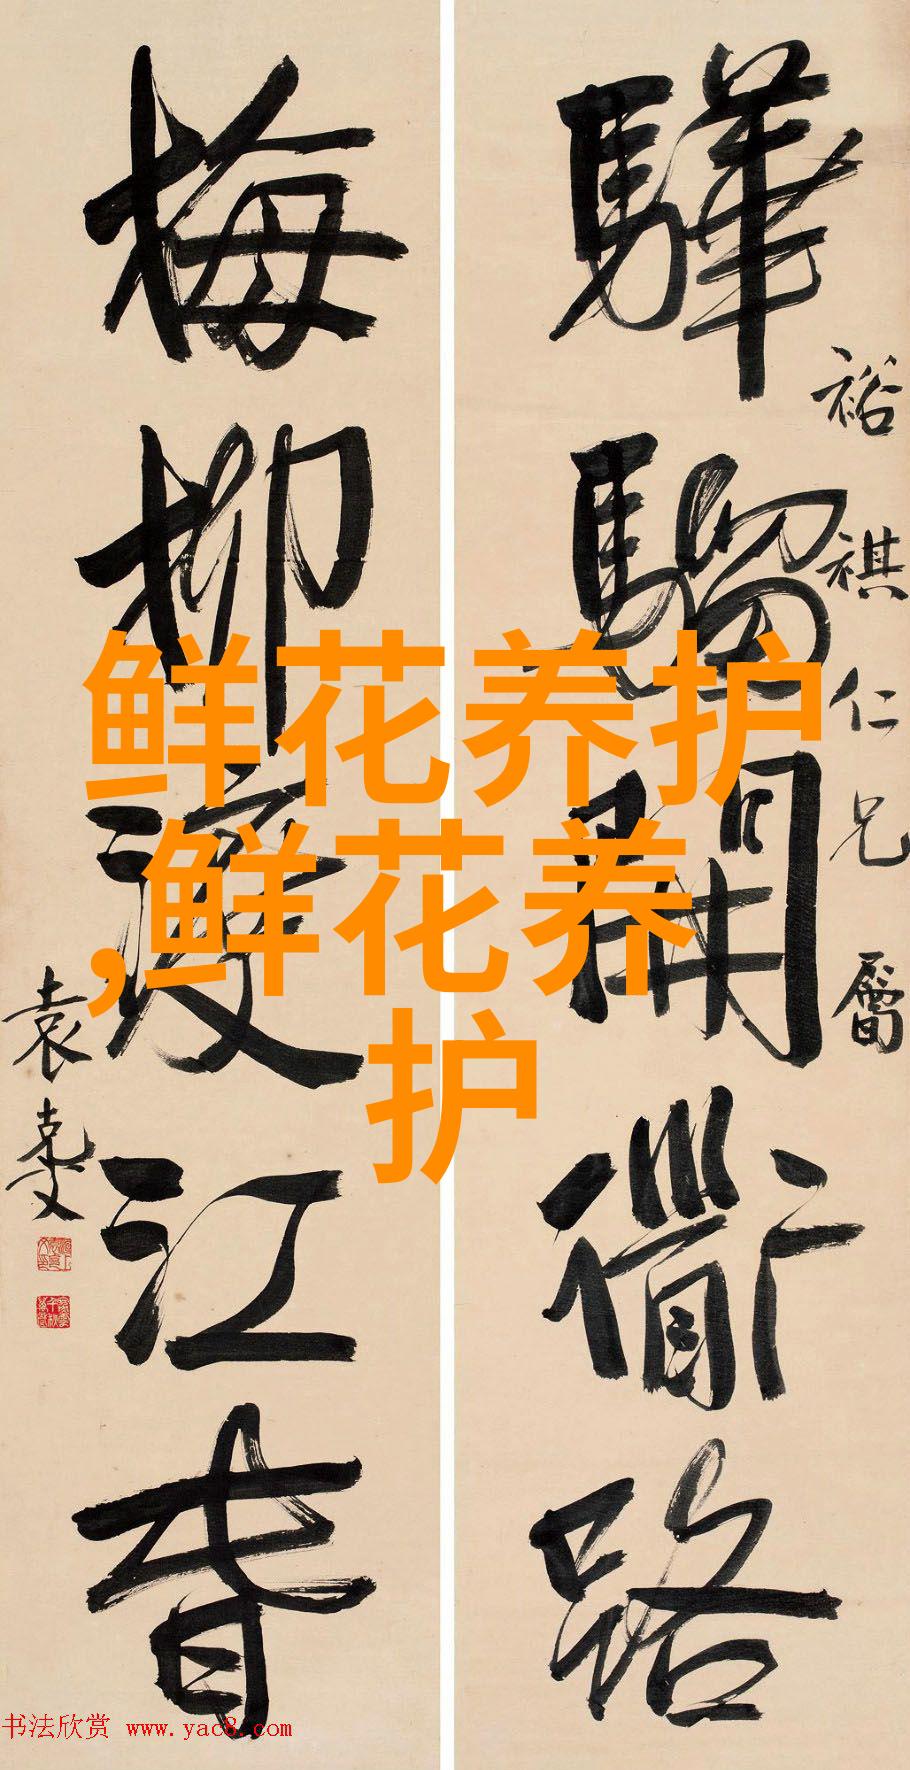 驊騮開衜路
裕祺仁兄屬
梅柳渡江春
袁克文
鲜花养护
,鲜花养
护
书法欣赏 www.yac8.com